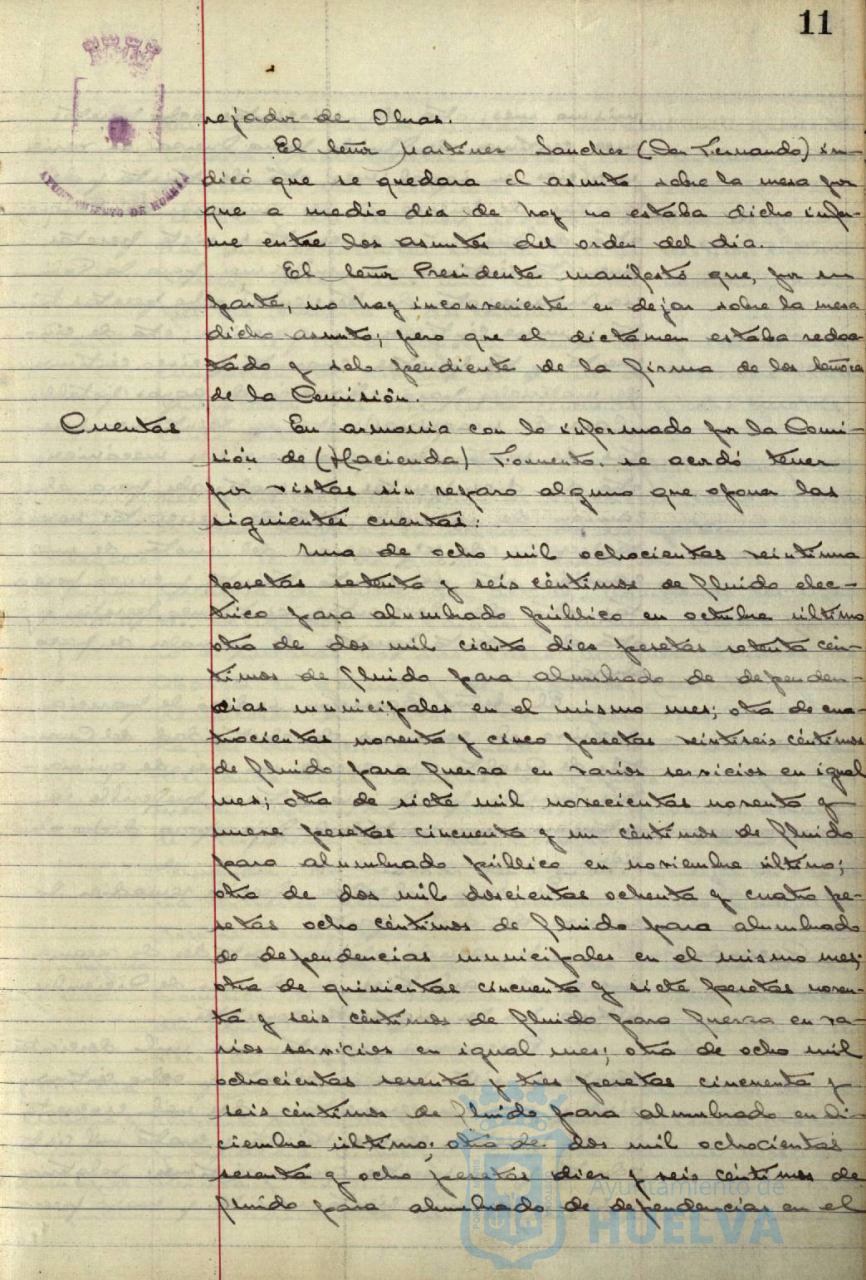 11
AYUNTAMIENTO DE HUELVA
rejador de Obras.
El señor Martinez Sanchez (Don Fernando) in-
dicó que se quedara el asunto sobre la mesa por
que a medio dia de hoy no estaba dicho infor-
me entre los asuntos del orden del dia.
El señor Presidente manifestó que, por su
parte, no hay inconveniente en dejar sobre la mesa
dicho asunto; pero que el dictámen estaba redac-
tado y solo pendiente de la firma de los señores
de la Comisión.
Cuentas
En armonia con lo informado por la Comi-
sión de (Hacienda) Fomento, se acordó tener
por vistas sin reparo alguno que oponer las
siguientes cuentas:
Una de ocho mil ochocientas veintiuna
pesetas setenta y seis céntimos de fluido eléc-
trico para alumbrado público en octubre último
otra de dos mil ciento diez pesetas setenta cén-
timos de fluido para alumbrado de dependen-
cias municipales en el mismo mes; otra de cua-
trocientas noventa y cinco pesetas veintiseis céntimos
de fluido para fuerza en varios servicios en igual
mes; otra de siete mil novecientas noventa y
nueve pesetas cincuenta y un céntimos de fluido
para alumbrado público en noviembre último;
otra de dos mil doscientas ochenta y cuatro pe-
setas ocho céntimos de fluido para alumbrado
de dependencias municipales en el mismo mes;
otra de quinientas cincuenta y siete pesetas noven-
ta y seis céntimos de fluido para fuerza en va-
rios servicios en igual mes; otra de ocho mil
ochocientas sesenta y tres pesetas cincuenta y
seis céntimos de fluido para alumbrado en di-
ciembre último; otra de dos mil ochocientas
sesenta y ocho pesetas diez y seis céntimos de
fluido para alumbrado de dependencias en el
Ayuntamiento de
HUELVA